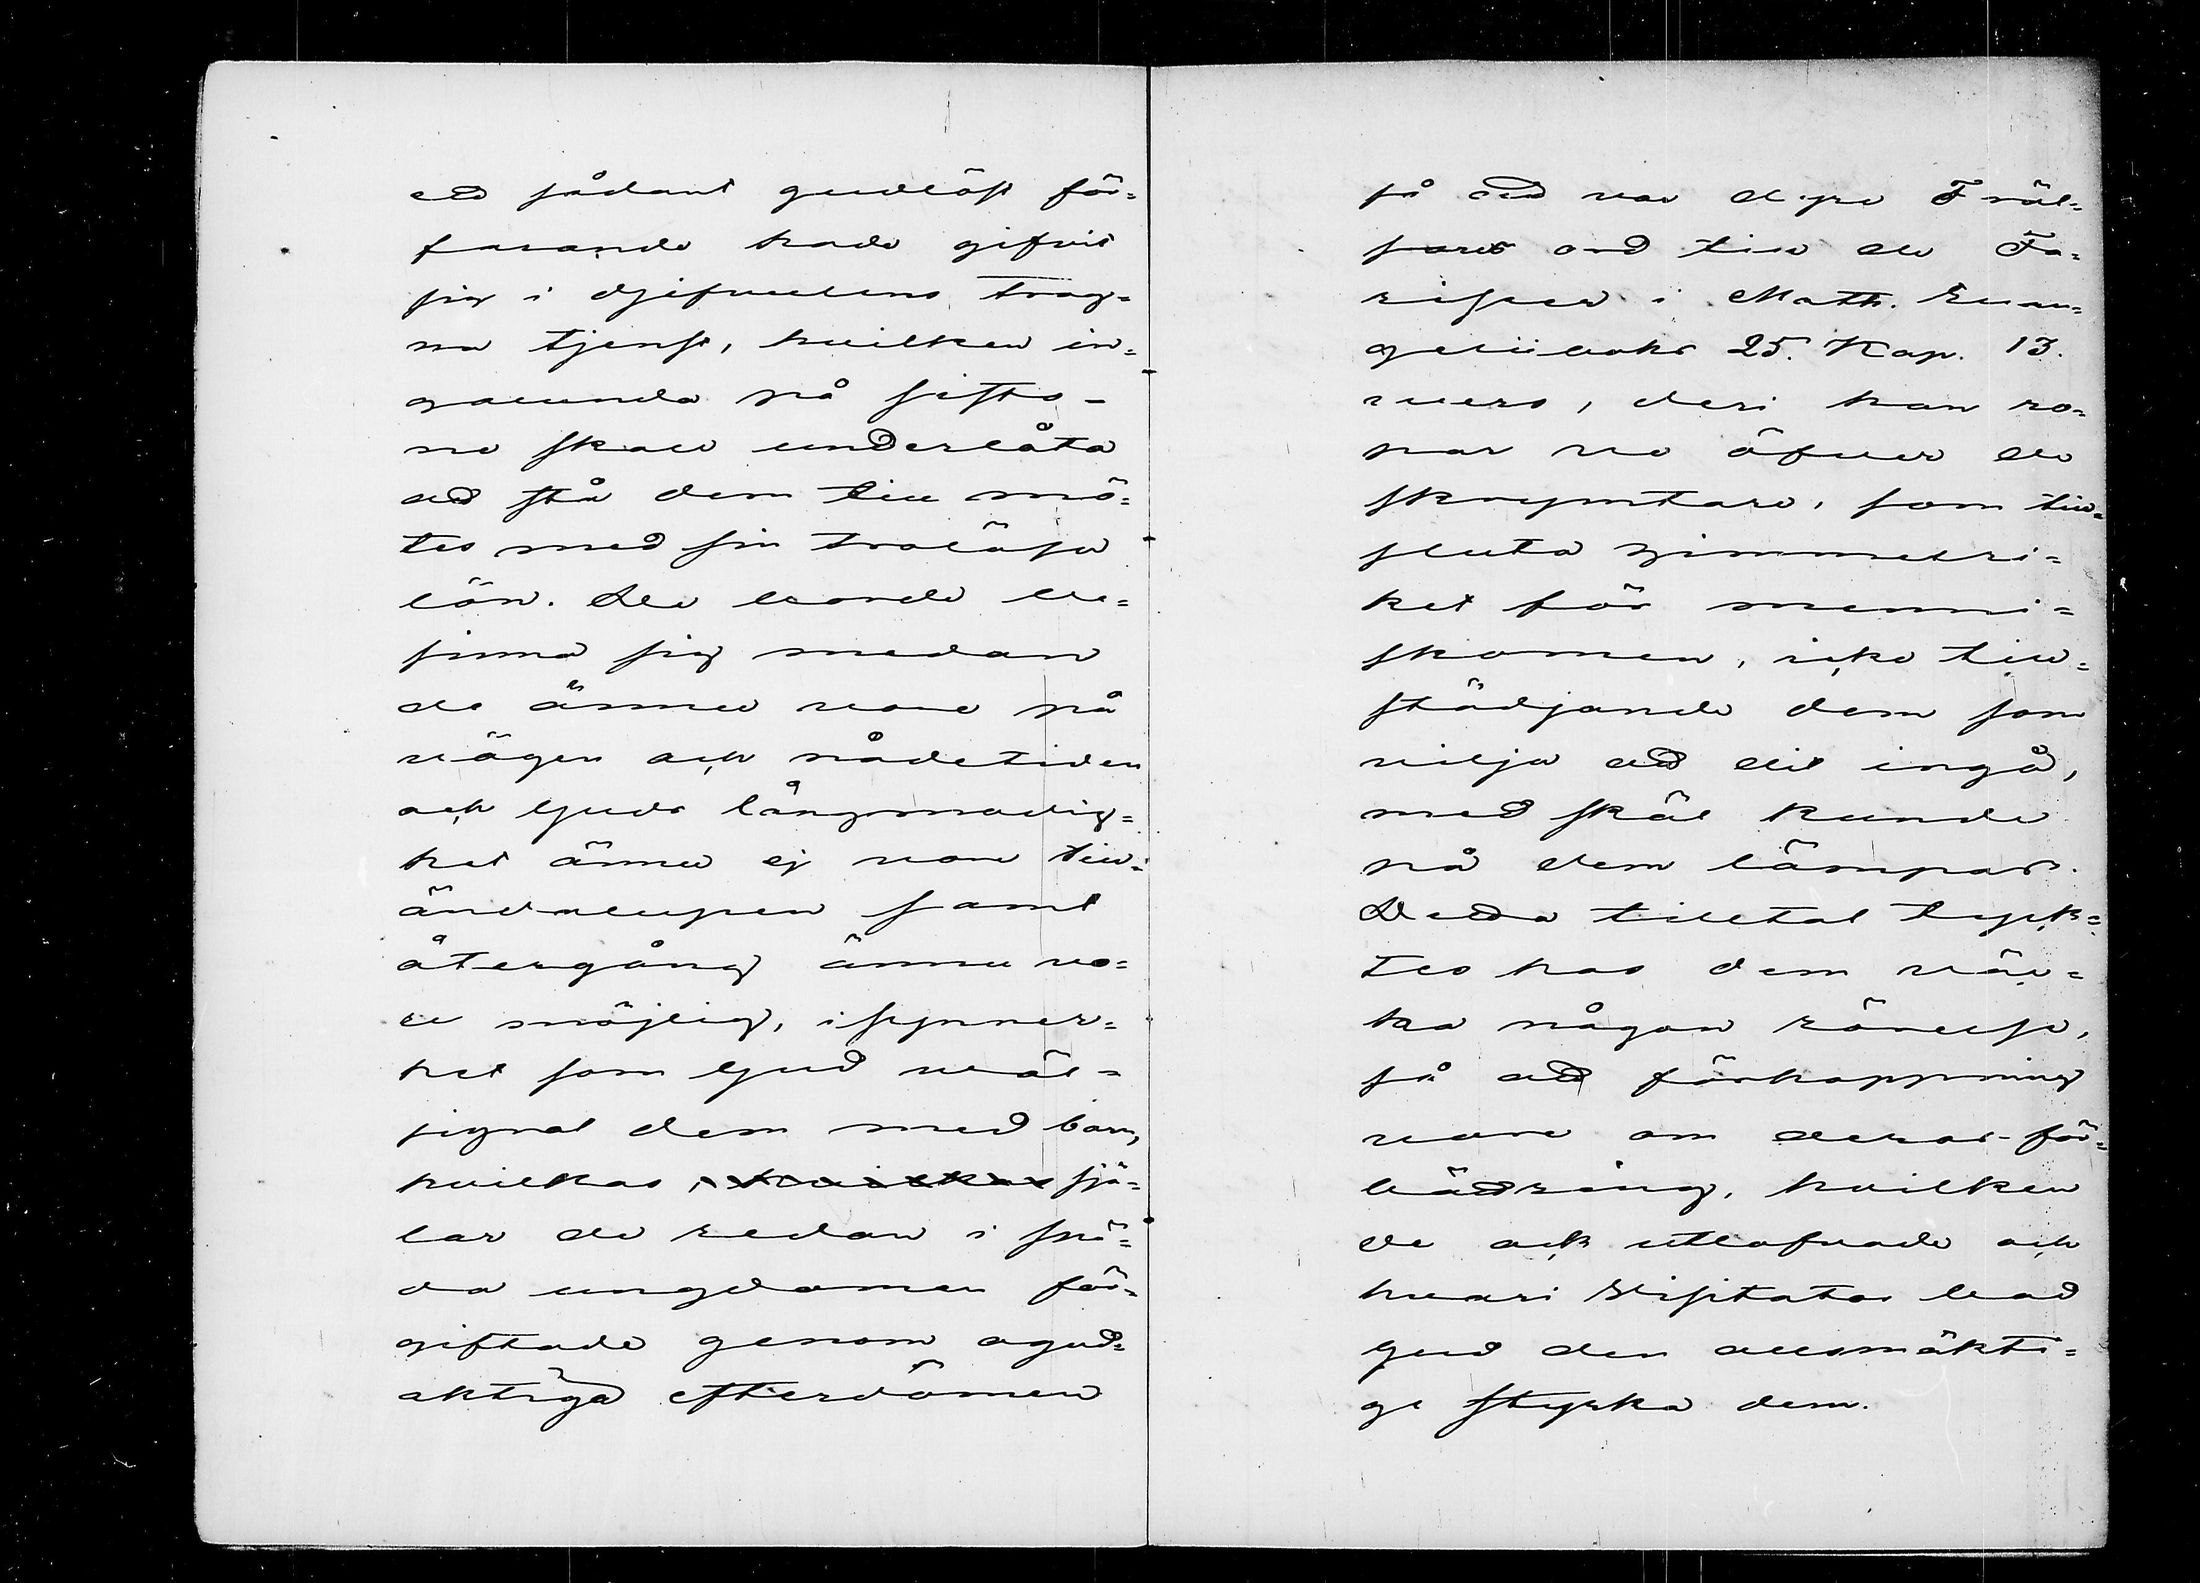 ett sådant gudlöst för=
farande hade gifvit
sig i djefvulens trag=
na tjenst, hvilken in=
galunda på sisto-
ne skall underlåta
att stå dem till mö=
tes med sin trolösa
lön. De borde be=
sinna sig medan
de ännu vore på
vägen och nådetiden
och Guds långmodig=
het ännu ej vore till=
ändalupen samt
återgång ännu vo=
re möjelig, i synner=
het som Gud väl=
signat dem med barn,
hvilkas sjä=
lar de redan i spä=
da ungdomen för=
giftade genom ogud=
aktiga efterdömen
så att var dyre Fräl=
sares ord till de Fa=
riseer i Math. Evan=
gelii boks 25. Kap. 13.
vers, deri han ro=
par ve öfver de
skrymtare, som till=
sluta himmelri=
ket för menni=
skomen, icke till=
städjande dem som
vilja att dit ingå,
med skäl kunde
på dem lämpas.
Detta tilltal tyck=
tes hos dem väc=
ka någon rörelse,
så att förhoppning
vore om deras för=
bättring, hvilken
de ock utlofvade och
hvari Visitator bad
Gud den allsmäkti=
ge styrka dem.